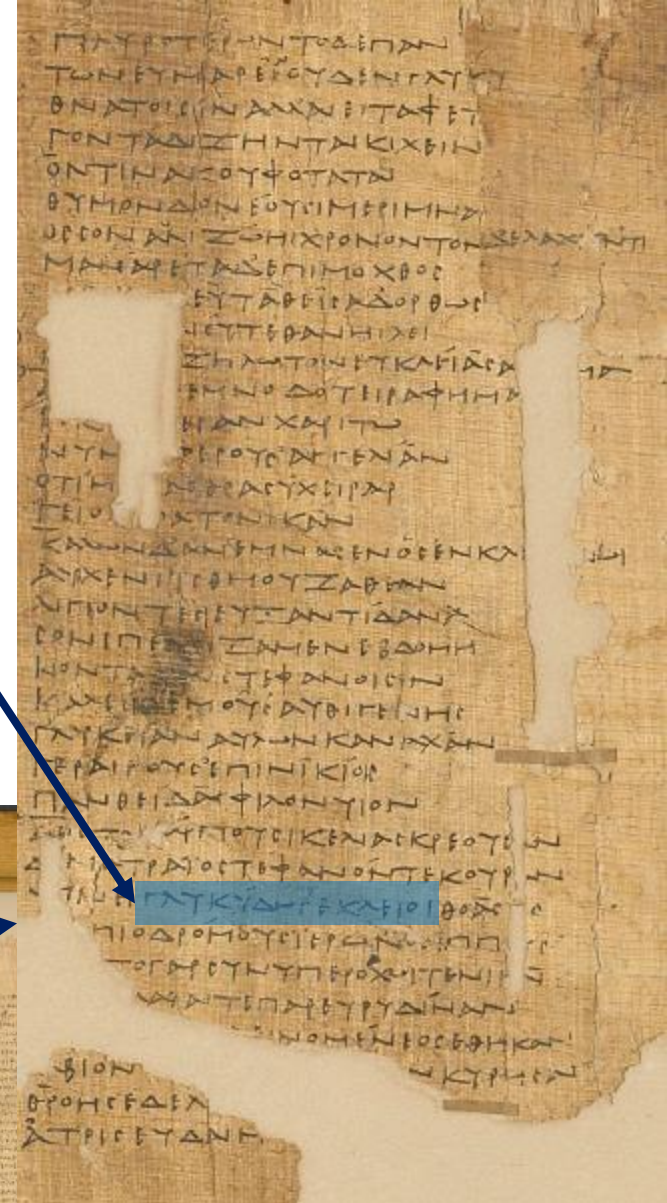 ΠΑΥΡΟΤΕΡΩΝΤΟΔΕΠΑΝ
ΤΩΝΕΥΜΑΡΕΙΟΥΔΕΝΓΛΥΚΥ
ΘΝΑΤΟΙϹΙΝΑΛΛΑΙΕΙΤΑΦΕΥ
ΓΟΝΤΑΔΙΖΗΝΤΑΙΚΙΧΕΙΝ
ΟΝΤΙΝΑΚΟΥΦΟΤΑΤΑΙ
ΘΥΜΟΝΔΟΝΕΟΥϹΙΜΕΡΙΜΝΑΙ
ΟϹϹΟΝΑΝΖΩΗΙΧΡΟΝΟΝΤΟΝΔΕΛΑΧΕΝΤΙ
ΜΑΝΑΡΕΤΑΔΕΠΙΜΟΧΘΟϹ
ΕΥΤΑΘΕΙϹΑΔΟΡΘΩϹ
ΕΥΤΕΘΑΝΗΙΛΕΙ
ΖΗΛΩΤΟΝΕΥΚΛΕΙΑϹΑ ΜΑ
ΕΜΝΟΔΟΤΕΙΡΑΦΗΜΑ
ΑΝΧΑΡΙΤΩ
ΝΥΜ ΦΕΡΟΥϹΑΓΓΕΛΙΑΝ
ΟΤΙΜ ΑϹΘΡΑϹΥΧΕΙΡΑΡ
ΓΕΙΟ ΡΑΤΟΝΙΚΑΝ
ΚΑΛΩΝΔΑΝΕΜΝΑϹΕΝΟϹΕΝΚΛ
ΑΥΧΕΝΙΙϹΘΜΟΥΖΑΘΕΑΝ
ΛΙΠΟΝΤΕϹΕΥΞΑΝΤΙΔΑΝΑ
ϹΟΝΕΠΕΔΕΙΞΑΜΕΝΕΒΔΟΜΗ
ΚΟΝΤΑ ϹΤΕΦΑΝΟΙϹΙΝ
ΚΑΛΕΙΔΕΜΟΥϹΑΥΘΙΓΕΝΗϹ
ΓΛΥΚΕΙΑΝΑΥΛΩΝΚΑΝΑΧΑΝ
ΓΕΡΑΙΡΟΥϹΕΠΙΝΙΚΙΟΙϹ
ΠΑΝΘΕΙΔΑΦΙΛΟΝΥΙΟΝ
ΑΡΙϹΤΟΚΑΡΠΟΥϹΙΚΕΛΙΑϹΚΡΕΟΥϹΑΝ
ΔΑΜΑΤΡΑΙΟϹΤΕΦΑΝΟΝΤΕΚΟΥΡΑΝ
ΥΜΝΕΙΓΛΥΚΥΔΩΡΕΚΛΕΙΟΙΘΟΑϹ
ΠΙΟΔΡΟΜΟΥϹΙΕΡΩΝΟϹΙΠΠ Ϲ
ΤΟΓΑΡϹΥΝΥΠΕΡΟΧΩΙΤΕΝΙΚΑΙ
ΑΙΑΙΤΕΠΑΡΕΥΡΥΔΙΝΑΝ
ΕΙΝΟΜΕΝΕΟϹΕΘΗΚΑΝ
ΝΚΥΡΗϹΑΙ
ΒΙΟΝ
ΘΡΟΗϹΕΔΕΛ
ΑΤΡΙϹΕΥΔΑΙΜ